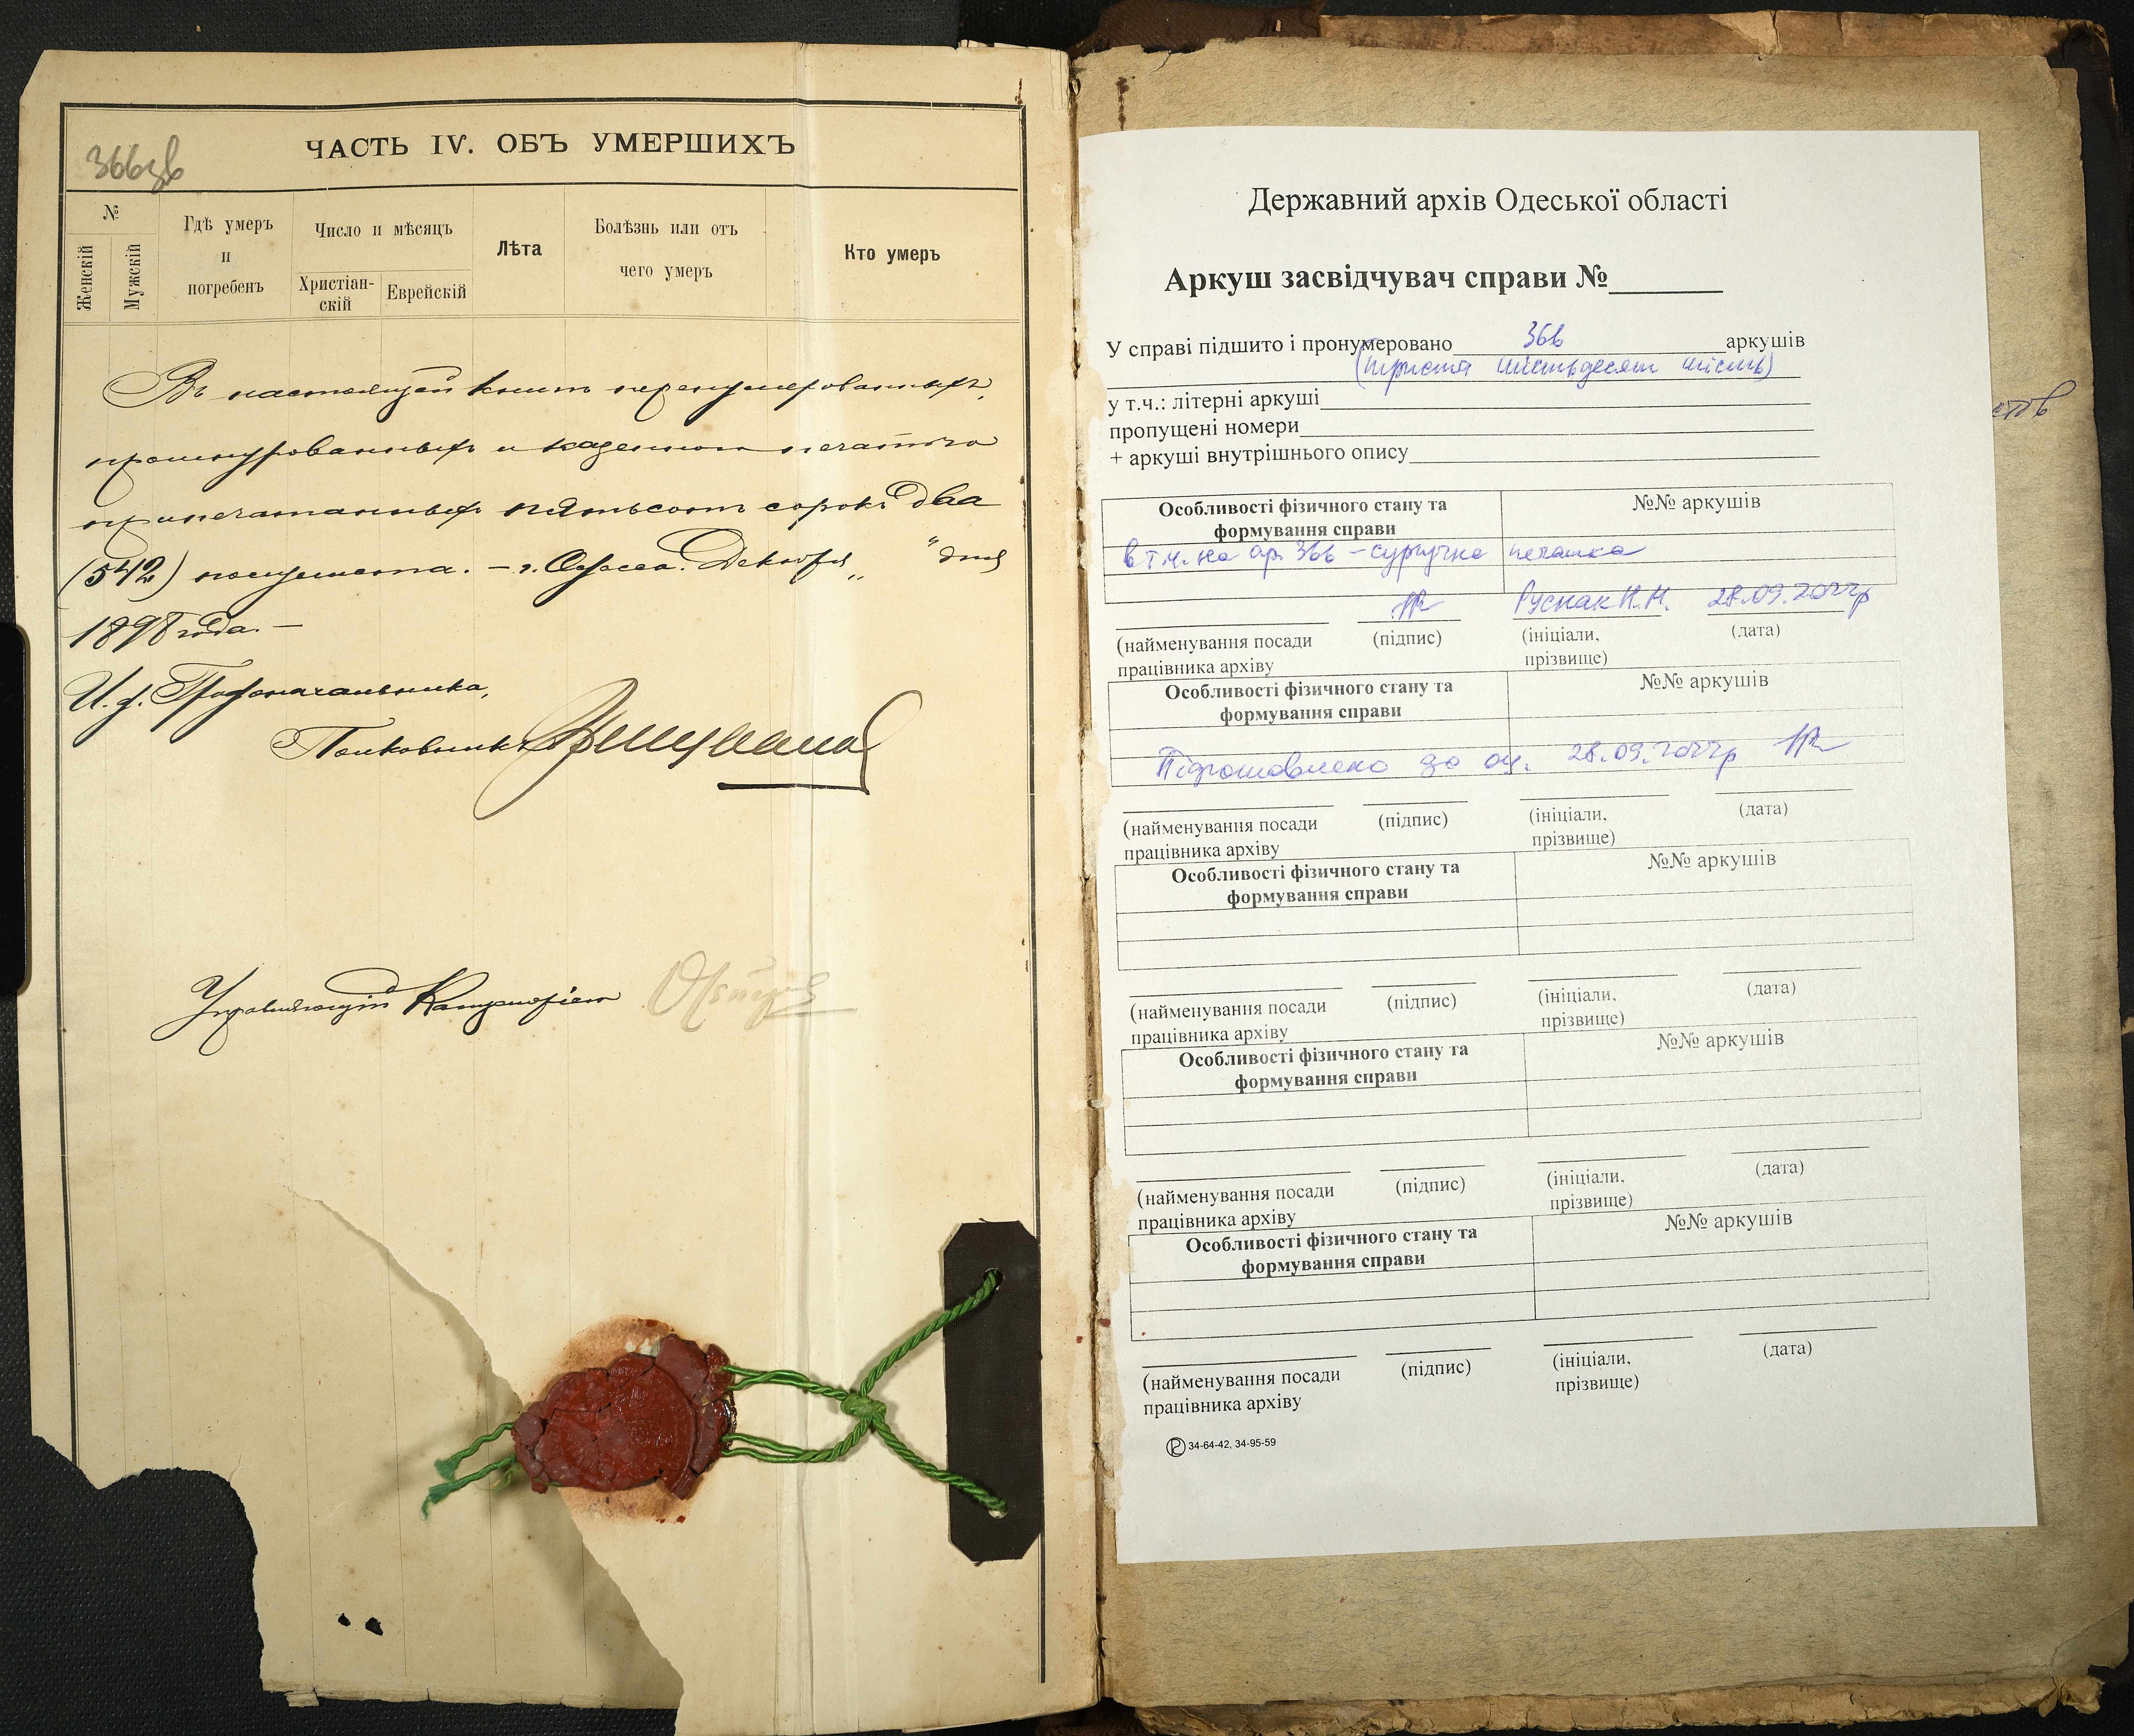 366зв
ЧАСТЬ IV. ОБЪ УМЕРШИХЪ
№
Женскій
Мужскій
Гдѣ умеръ
и
погребенъ
Число и мѣсяцъ
Христіан-
скій
Еврейскій
Лѣта
Болѣзнь или отъ
чего умеръ
Кто умеръ
Въ настоящей книгѣ перенумерованныхъ,
прошнурованныхъ и казенною печатью
припечатанныхъ пятьсотъ сорокъ два
(542) полулиста. – г. Одесса. Декабря „ " дня
1898 года. –
И. д. Градоначальника,
Полковникъ
Управляющій Канцеляріею
Державний архів Одеської області
Аркуш засвідчувач справи №
У справі підшито і пронумеровано 366 аркушів
(триста шістьдесят шість)
у т.ч.: літерні аркуші
пропущені номери
+ аркуші внутрішнього опису
Особливості фізичного стану та
формування справи
№№ аркушів
в т.ч. на ар. 366 – сургучна печатка
Руснак Н.М. 28.09.2022р
(найменування посади
працівника архіву
(підпис)
(ініціали,
прізвище)
(дата)
Особливості фізичного стану та
формування справи
№№ аркушів
Підготовлено до оц. 28.09.2022р
(найменування посади
працівника архіву
(підпис)
(ініціали,
прізвище)
(дата)
Особливості фізичного стану та
формування справи
№№ аркушів
(найменування посади
працівника архіву
(підпис)
(ініціали,
прізвище)
(дата)
Особливості фізичного стану та
формування справи
№№ аркушів
(найменування посади
працівника архіву
(підпис)
(ініціали,
прізвище)
(дата)
Особливості фізичного стану та
формування справи
№№ аркушів
(найменування посади
працівника архіву
(підпис)
(ініціали,
прізвище)
(дата)
34-64-42, 34-95-59